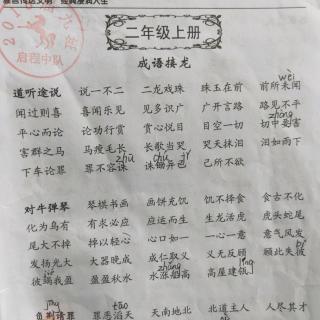 二年级上册
成语接龙
道听途说 说一不二 二龙戏珠 珠玉在前 前所未闻
闻过则喜 喜闻乐见 见多识广 广开言路 路见不平
平心而论 论功行赏 赏心悦目 目空一切 切中要害
害群之马 马瘦毛长 长歌当哭 哭天抹泪 泪如雨下
下车论罪 罪不容诛 诛锄异己 己所不欲
对牛弹琴 琴棋书画 画饼充饥 饥不择食 食古不化
化为乌有 有求必应 应运而生 生龙活虎 虎头蛇尾
尾大不掉 掉以轻心 心口如一 一心一意 意气风发
发扬光大 大器晚成 成仁取义 义无反顾 顾此失彼
彼竭我盈 盈盈秋水 水涨船高 高屋建瓴
负荆请罪 罪恶滔天 天南地北 北道主人 人尽其才
启程中队
wèi
zhòng
zhū
chú
jǐ
zhǎng
líng
bǐ
jīng
tāo